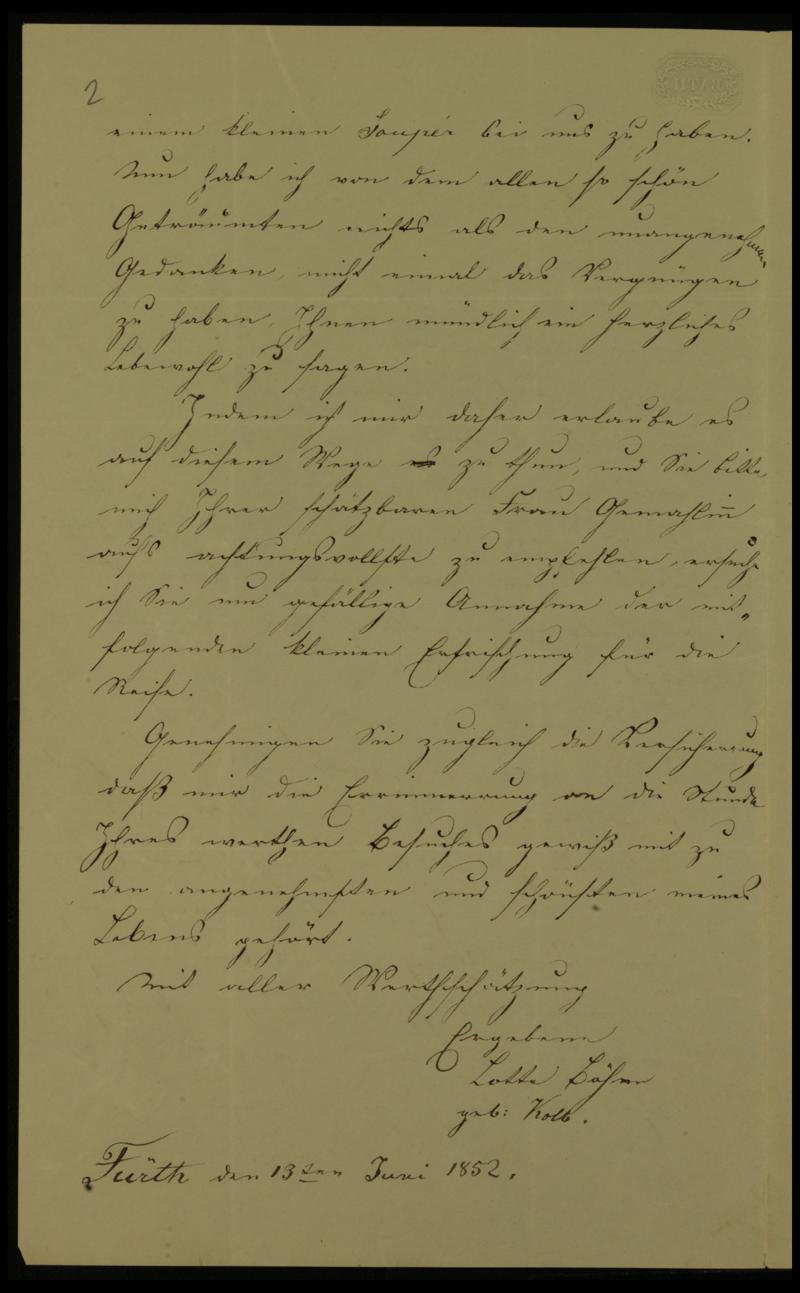 2
einem kleinen Soupér bei uns zu haben.
Nun habe ich von dem allen so schön
Geträumten nichts als den unangenehmen
Gedanken, nicht einmal das Vergnügen
zu haben, Ihnen mündlich ein herzliches
Lebewohl zu sagen.
Indem ich mir daher erlaube es
auf diesem Wege es zu thun, und Sie bitte
mich Ihrer schätzbaren Frau Gemahlin̄
aufs achtungsvollste zu empfehlen, ersuche
ich Sie um gefällige Annahme der mit„
folgenden kleinen Erfrischung für die
Reise.
Genehmigen Sie zugleich die Versicherung
daß mir die Errinnerrung an die Stunde
Ihres werthen Besuches gewiß mit zu
den angenehmsten und schönsten meines
Lebens gehört.
Mit aller Werthschätzung
Ergebene
Lotte Böhm
geb: Kolb.
Fürth den 13ten Juni 1852.